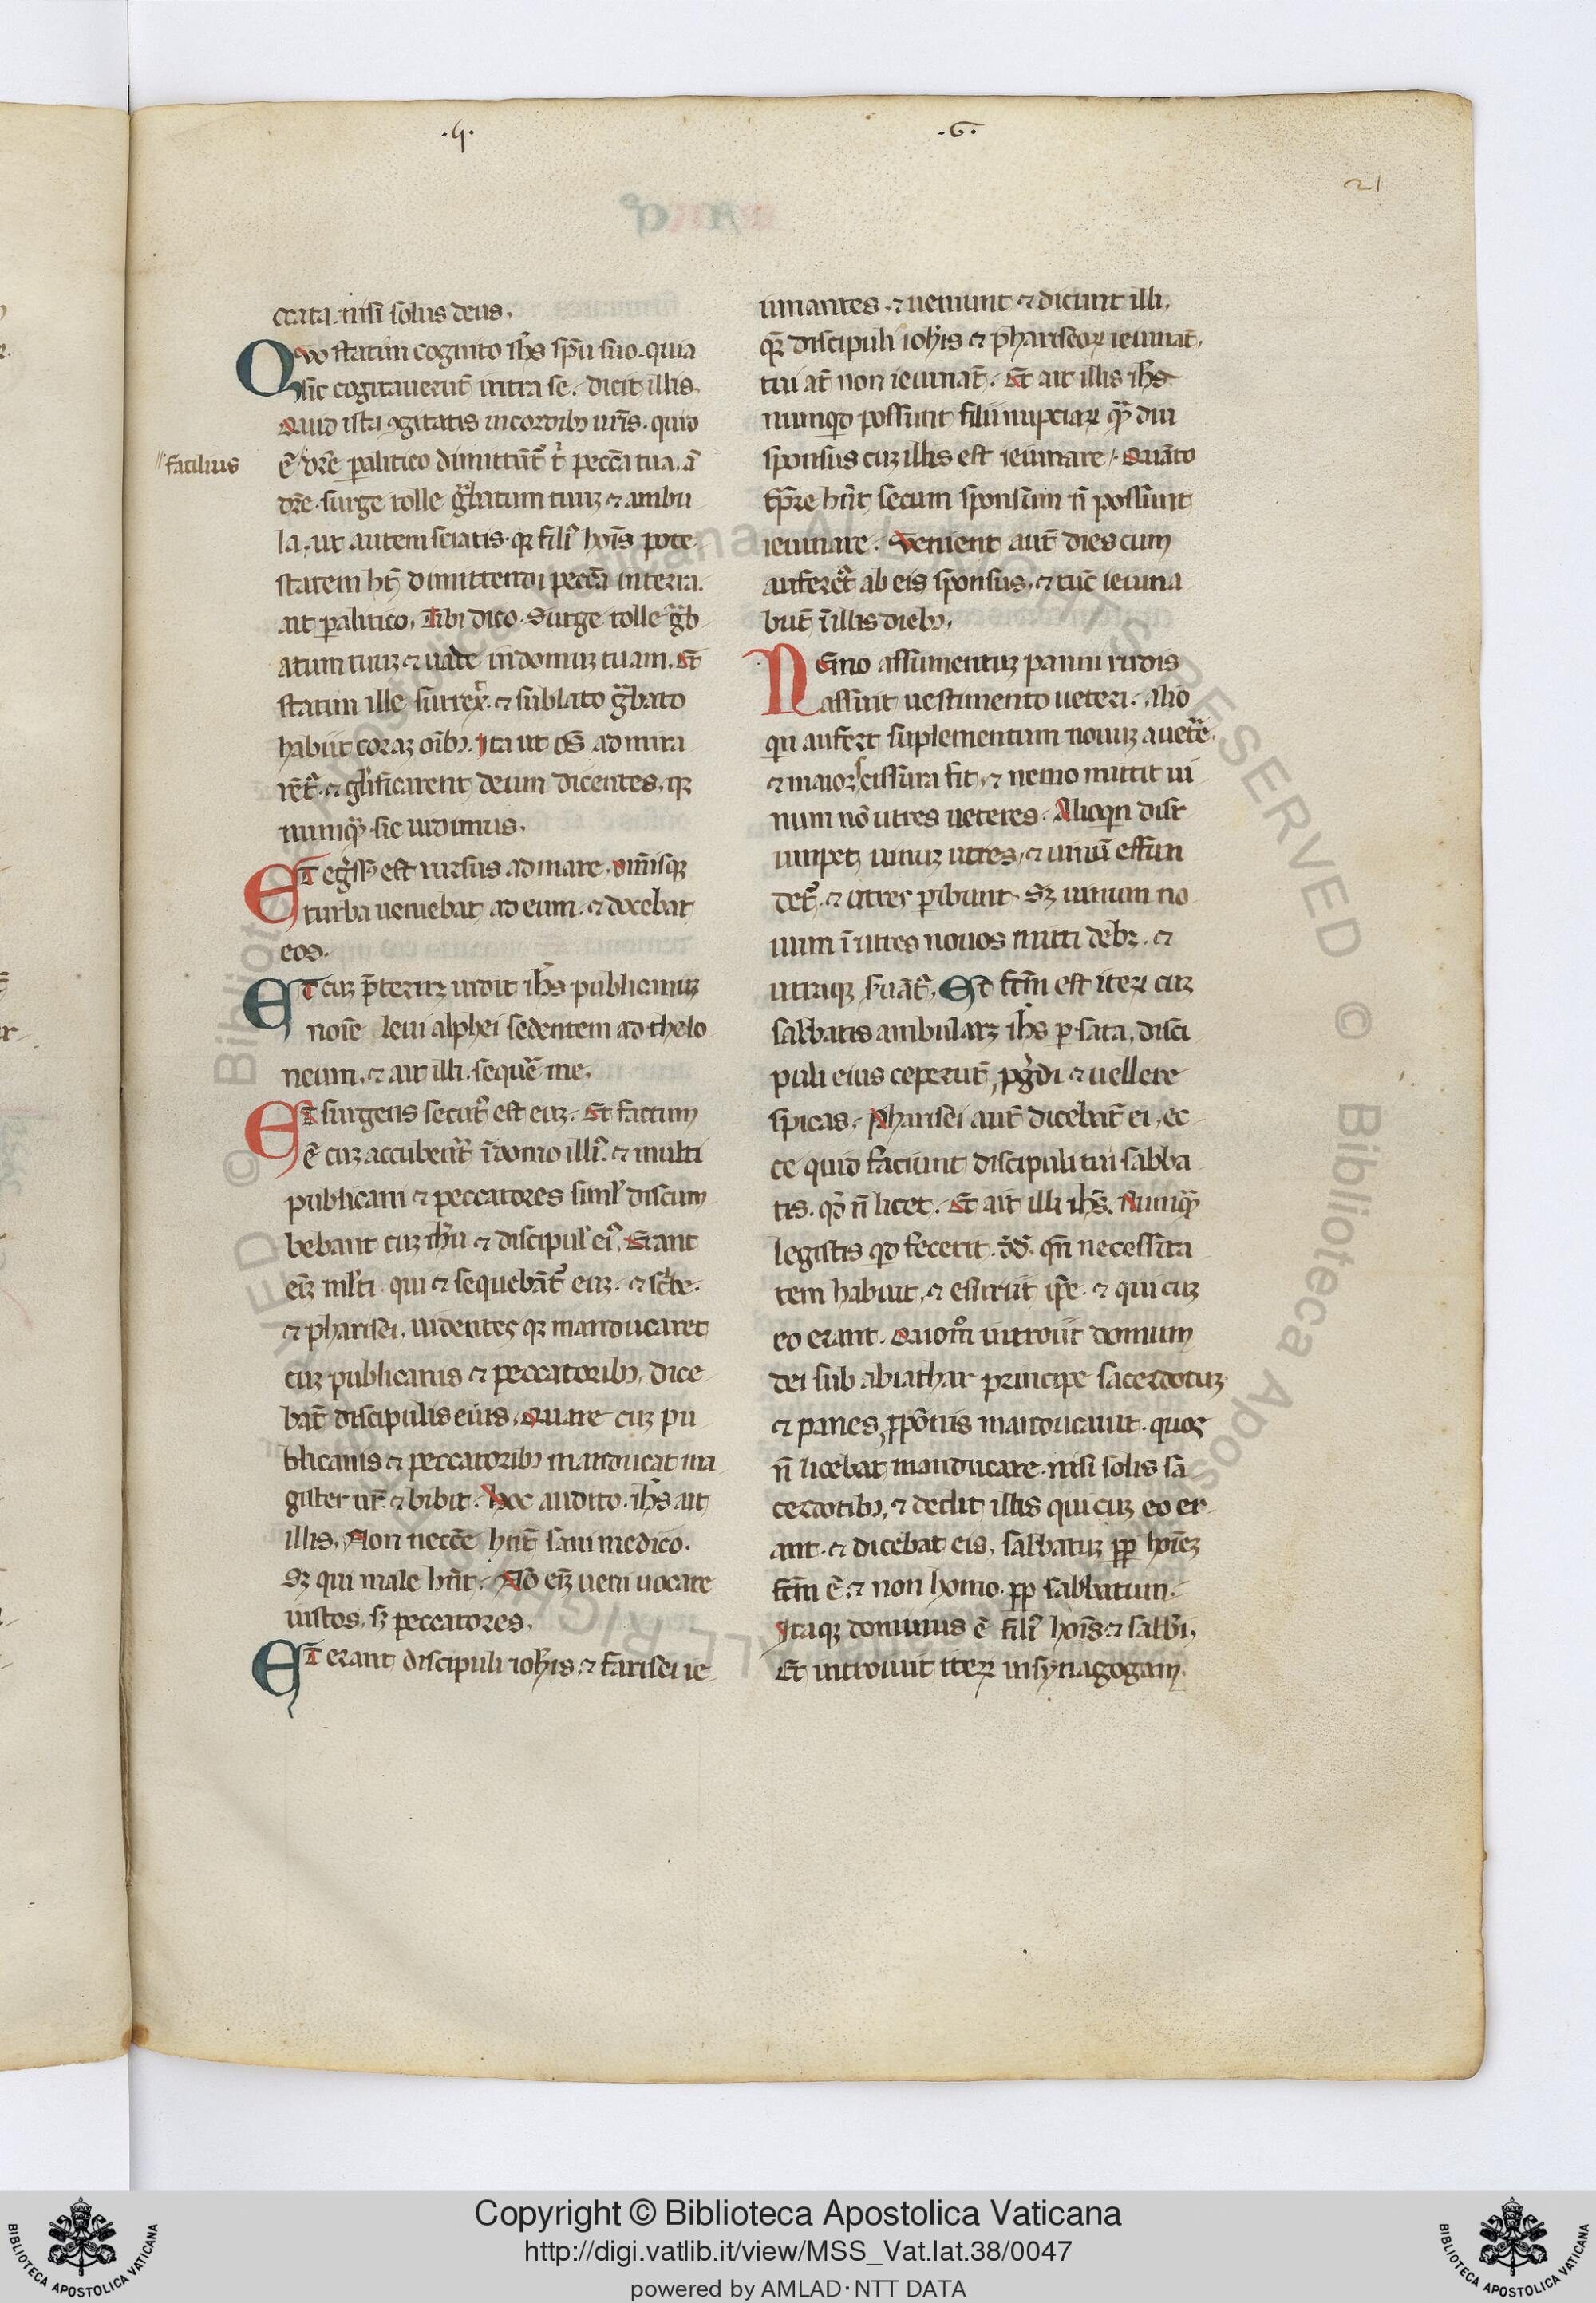 .5.
.6.
21
ccata. nisi solus deus.
Quo statim cognito ihs̄ sp̄u suo. quia
sic cogitauerūt intra se. dicit illis.
Quid ista ꝯgitatis in cordibꝫ ur̄is. quid
facilius
ē. dr̄e paͣlitico dimittūt᷑ t̄ pecc̄a tua. ā
dr̄e. surge tolle gͣbatum tuuꝫ ⁊ ambu
la. ut autem sciatis. qꝛ filiꝰ hoīs pote
statem ht̄ dimittendi pecc̄a in terra.
ait paͣlitico, Tibi dico. Surge tolle gͣb
atum tuuꝫ ⁊ uade in domuꝫ tuam. Et
statim ille surrex̄. ⁊ sublato gͣbato
habiit coraꝫ oībꝫ. Ita ut oēs admira
rēt᷑. ⁊ glīficarent deum dicentes. qꝛ
numqͣ sic uidimus.
ET egͥssꝰ est rursus ad mare. omīsqꝫ
turba ueniebat ad eum. ⁊ docebat
eos.
ET cuꝫ p̄teriꝛꝫ uidit ihs̄ publicanuꝫ
noīe leui alphei sedentem ad thelo
neum. ⁊ ait illi. sequer̄ me.
ET surgens secutꝰ est euꝫ. Et factum
ē cuꝫ accuberēt ī domo illiꝰ. ⁊ multi
publicani ⁊ peccatores siml̄ discum
bebant cuꝫ ihū ⁊ discipul' eiꝰ. Erant
eī mlt̄i qui ⁊ sequebāt᷑ euꝫ. ⁊ sc̄be.
⁊ pharisei. uidentes qꝛ manducaret
cuꝫ publicanis ⁊ peccatoribꝫ, dice
bāt discipulis eius. Quare cuꝫ pu
blicanis ⁊ peccatoribꝫ manducat ma
gister ur̄. ⁊ bibit. Hoc audito. ihs̄ ait
illis. Non necc̄e hn̄t sani medico.
Sꝫ qui male hn̄t. Nō eī ueni uocare
iustos, sꝫ peccatores.
ET erant discipuli ioh̄is. ⁊ farisei ie
iunantes. ⁊ ueniunt ⁊ dicunt illi.
qͣr discipuli ioh̄is ⁊ phariseoꝝ ieiunāt.
tui at̄ non ieiunāt. Et ait illis ihs̄
numqd possunt filii nuptiaꝝ qͣdiu
sponsus cuꝫ illis est ieiunare. Quāto
tp̄re hn̄t secum sponsum n̄ possunt
ieiunare. Venient aut̄ dies cum
auferet᷑ ab eis sponsus. ⁊ tūc ieiuna
būt ī illis diebꝫ.
NEmo assumentuꝫ panni rudis
assuit uestimento ueteri. Alio
qn aufert suplementum nouuꝫ a uet̄e
⁊ maior scissura fit. ⁊ nemo mittit ui
num nō utres ueteres. Alioqn disr
umpet uinuꝫ utres. ⁊ uinū effun
det᷑. ⁊ utres pibunt. Sꝫ uinum no
uum ī utres nouos mitti debꝫ. ⁊
utraqꝫ suāt᷑. Et fc̄m est iteꝝ cuꝫ
sabbatis ambularꝫ ihs̄ p sata. disci
puli eius ceperūt pgͥdi ⁊ uellere
spicas. Pharisei aut̄ dicebāt ei. ec
ce quid faciunt discipuli tui sabba
tis. qđ n̄ licet. Et ait illi ihs̄. Numqͣ
legistis qd fecerit. dd̄. qn̄ necessita
tem habuit. ⁊ esuriit ip̄e. ⁊ qui cuꝫ
eo erant. Quom̊ introiit domum
dei sub abiathar principe sacerdotuꝫ
⁊ panes ꝓpōnis manducauit. quos
n̄ licebat manducare. nisi solis sa
cerdotibꝫ. ⁊ dedit istis qui cuꝫ eo er
ant. ⁊ dicebat eis. sabbatuꝫ ꝓp hoīeꝫ
fc̄m ē. ⁊ non homo. ꝓp sabbatum.
Itaqꝫ dominus ē filiꝰ hoīs. ⁊ sabbī.
Et introiuit iteꝝ in synagogam.
Copyright © Biblioteca Apostolica Vaticana
http://digi.vatlib.it/view/MSS_Vat.lat.38/0047
powered by AMLAD·NTT DATA
BIBLIOTECA APOSTOLICA VATICANA
BIBLIOTECA APOSTOLICA VATICANA